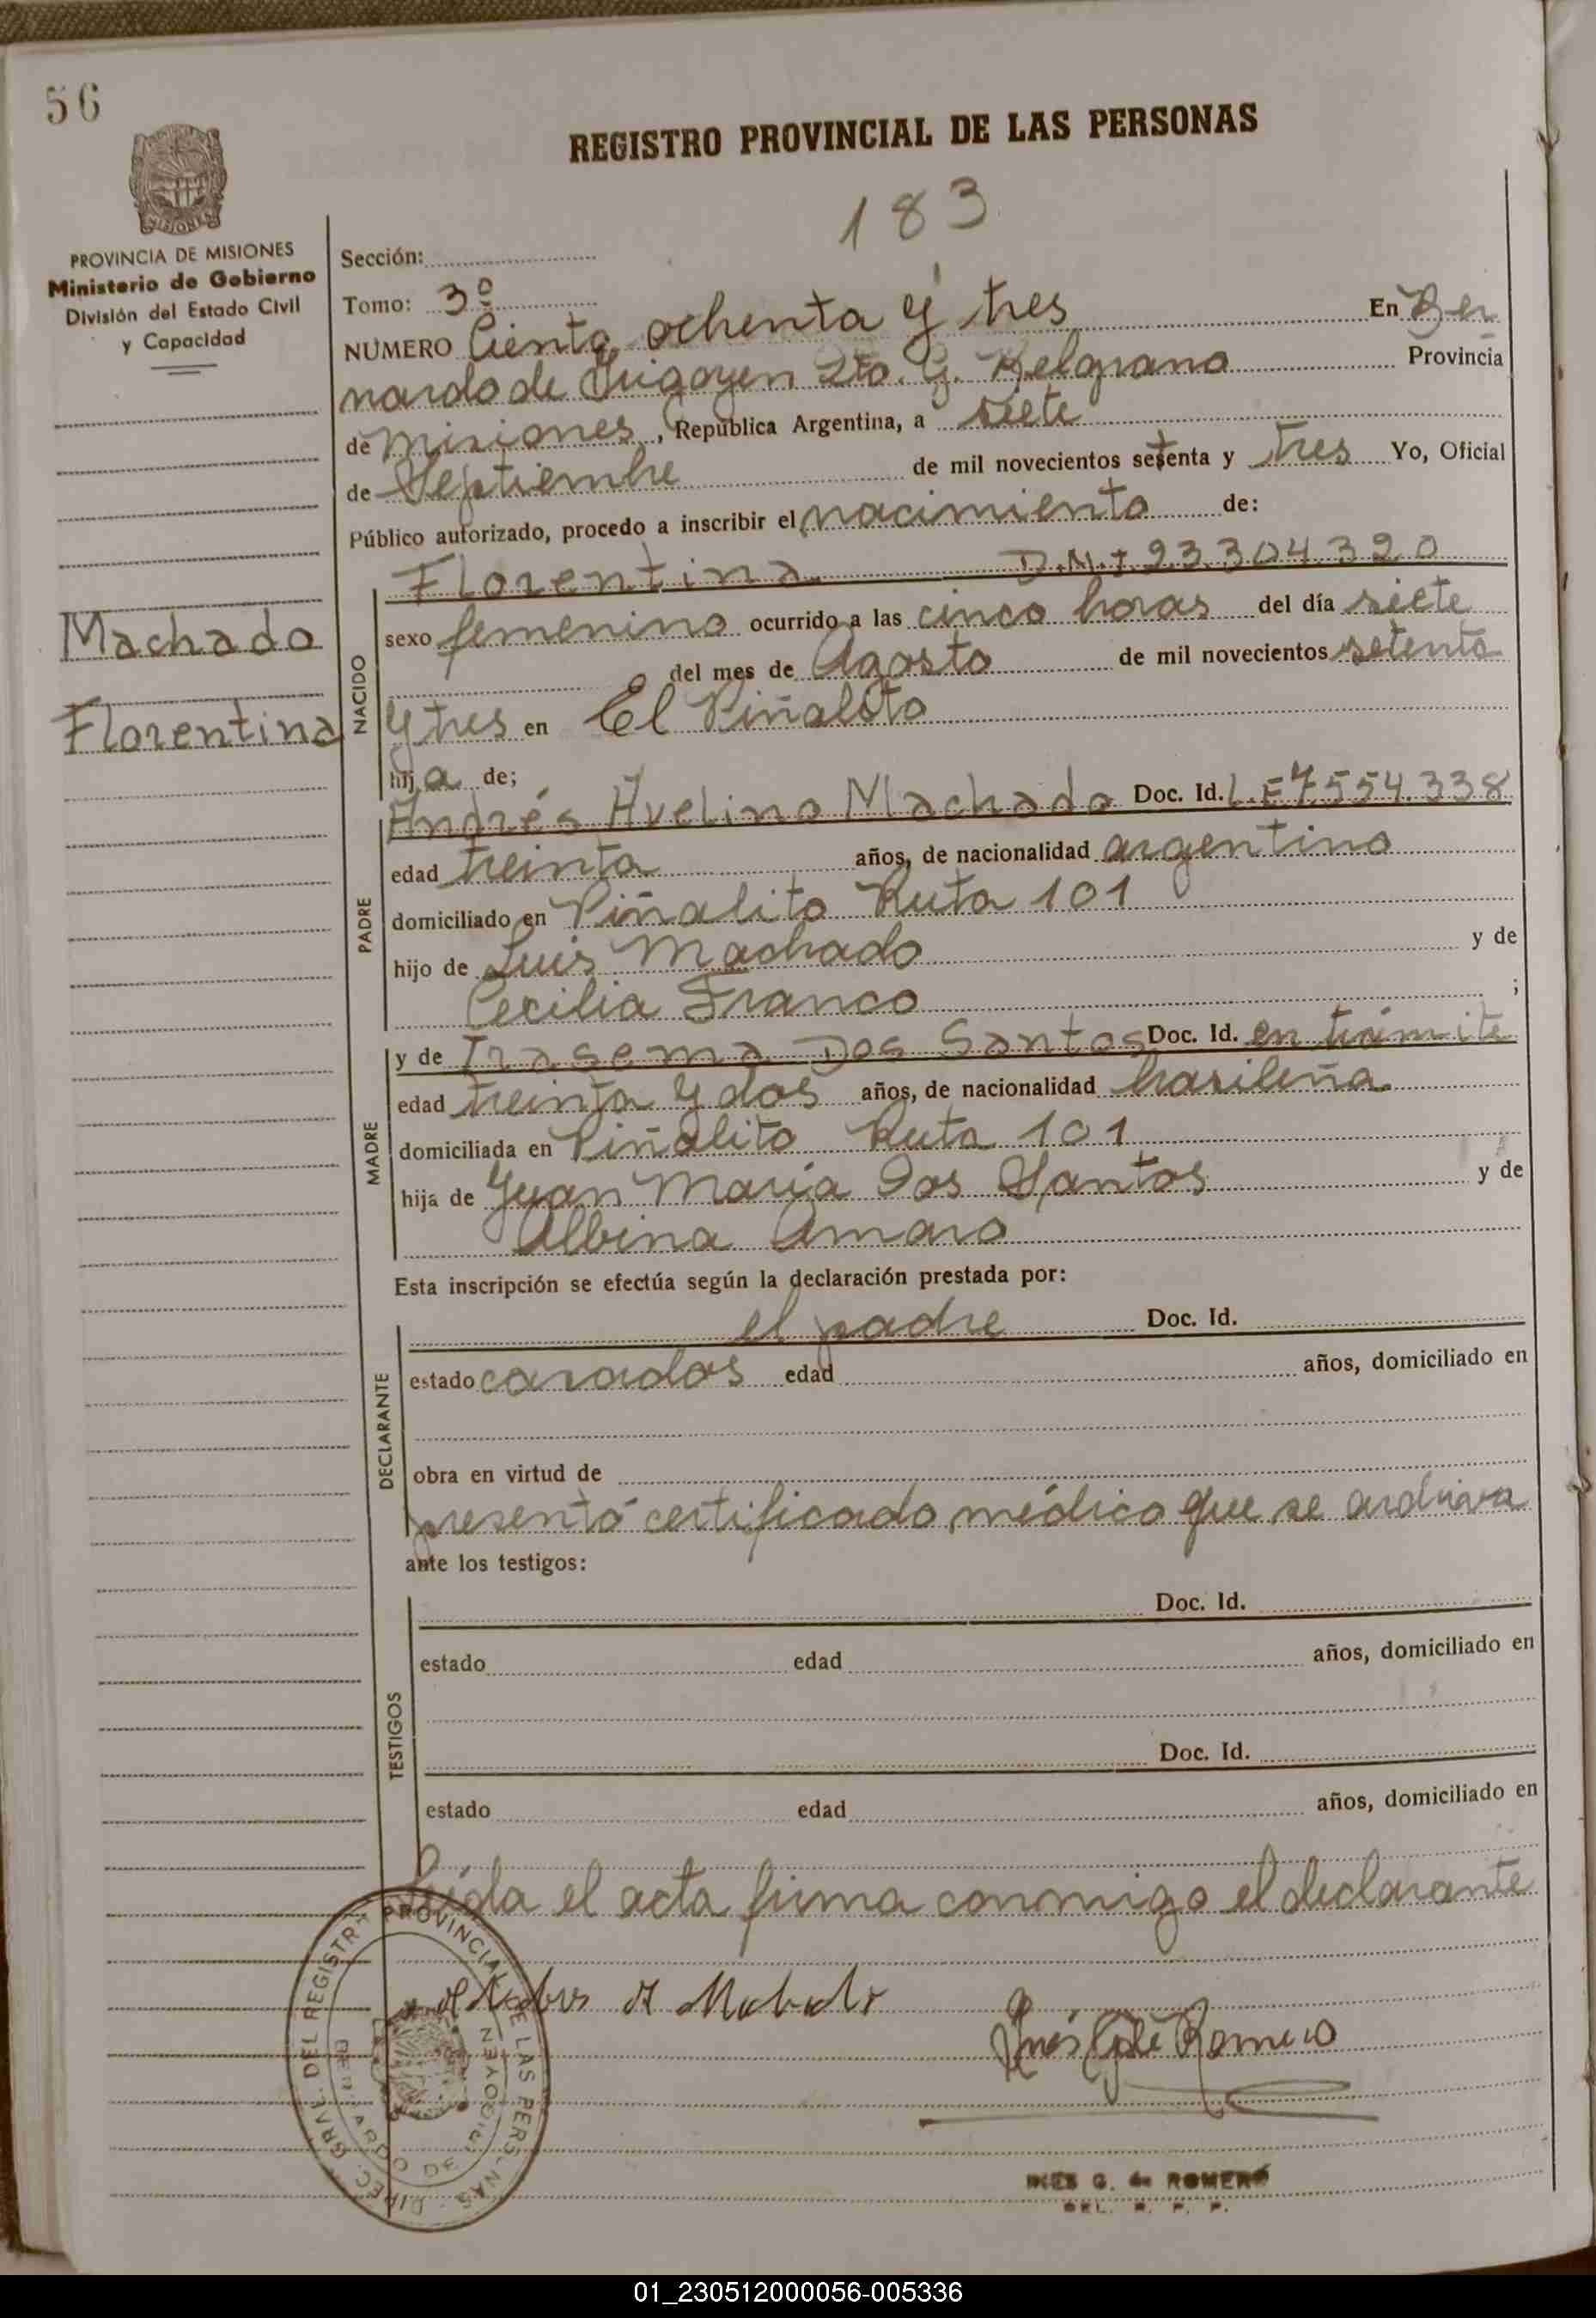 56
REGISTRO PROVINCIAL DE LAS PERSONAS
183
MISIONES
PROVINCIA DE MISIONES
Ministerio de Gobierno
División del Estado Civil
y Capacidad
Sección:
Tomo: 3º
NUMERO Ciento ochenta y tres En Ber
nardo de Irigoyen Dto. G. Belgrano Provincia
de Misiones, República Argentina, a siete
de Septiembre de mil novecientos setenta y tres Yo, Oficial
Público autorizado, procedo a inscribir el nacimiento de:
Florentina D.N.I 23.304.320
Machado
Florentina
NACIDO
sexo femenino ocurrido a las cinco horas del día siete
del mes de Agosto de mil novecientos setenta
y tres en El Piñalito
hija de;
PADRE
Andrés Avelino Machado Doc. Id. L.E 7.554.338
edad treinta años, de nacionalidad argentino
domiciliado en Piñalito Ruta 101
hijo de Luis Machado y de
Cecilia Franco ;
MADRE
y de Irasema Dos Santos Doc. Id. en trámite
edad treinta y dos años, de nacionalidad brasileña
domiciliada en Piñalito Ruta 101
hija de Juan María Dos Santos y de
Albina Amaro
Esta inscripción se efectúa según la declaración prestada por:
DECLARANTE
el padre Doc. Id.
estado casados edad años, domiciliado en
obra en virtud de
presentó certificado médico que se archiva
ante los testigos:
TESTIGOS
Doc. Id.
estado edad años, domiciliado en
Doc. Id.
estado edad años, domiciliado en
Leída el acta firma conmigo el declarante
DIREC. GRAL. DEL REGISTRO PROVINCIAL DE LAS PERSONAS
BERNARDO DE IRIGOYEN
Inés G. de Romero
INES G. de ROMERO
DEL. R. P. P.
01_230512000056-005336